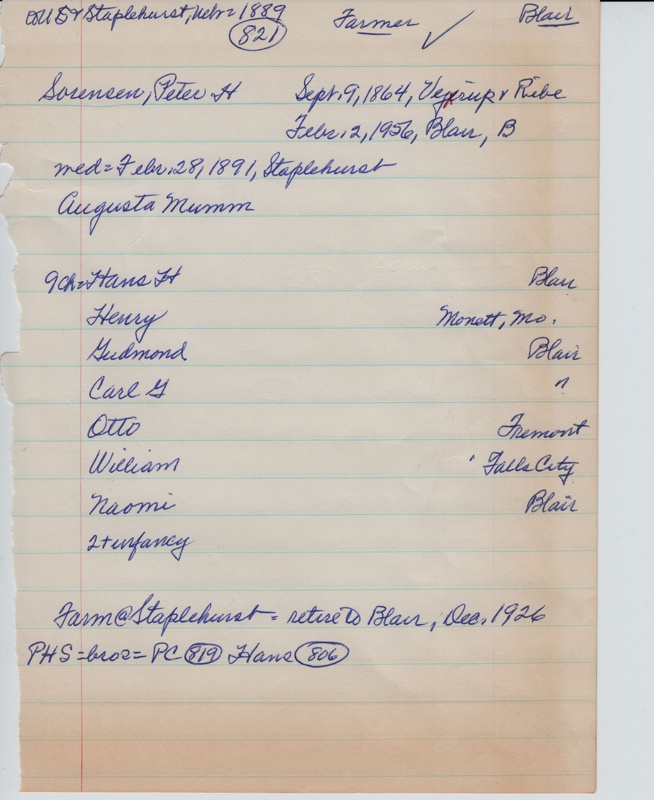 Staplehurst, Nebr = 1889 Farmer ✓ Blair
821
Sorensen, Peter H Sept. 9, 1864, Vejrup & Ribe
Febr. 2, 1956, Blair, B
med = Febr. 28, 1891, Staplehurst
Augusta Mumm
9 ch = Hans H Blair
Henry Monett, Mo.
Gudmond Blair
Carl G "
Otto Fremont
William Falls City
Naomi Blair
2 + infancy
Farm @ Staplehurst = retire to Blair, Dec. 1926
PHS = bros = PC 819 Hans 806